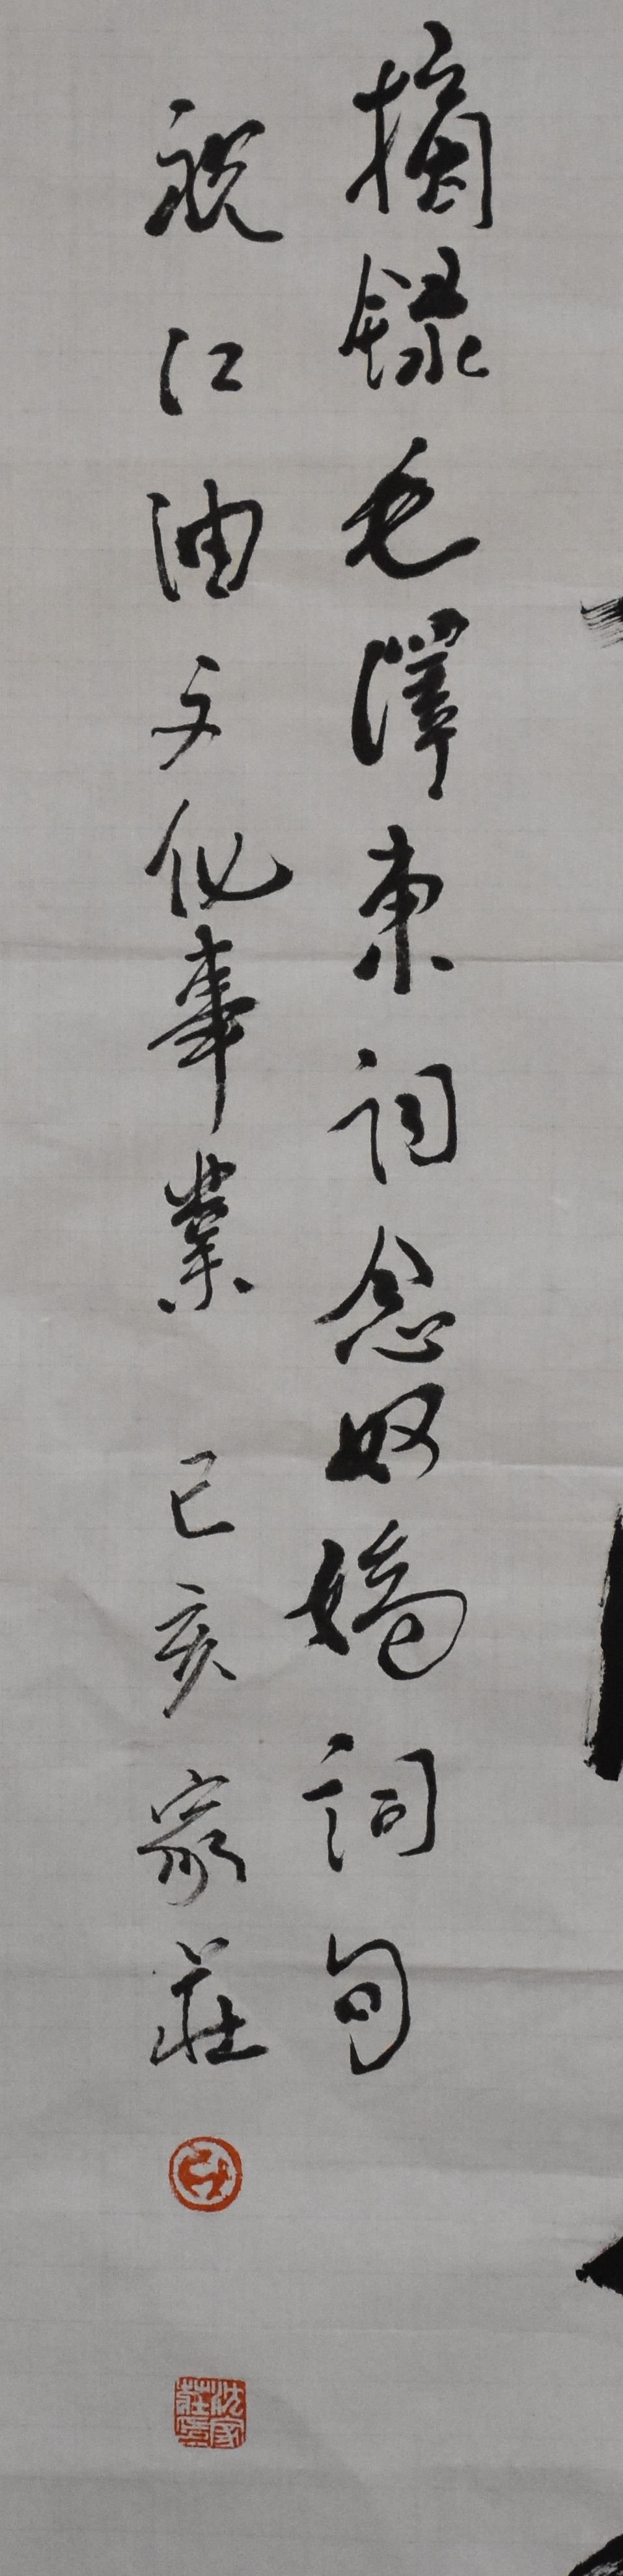 摘録毛澤東詞念奴嬌詞句
祝江油文化事業 己亥 家莊
沈家莊